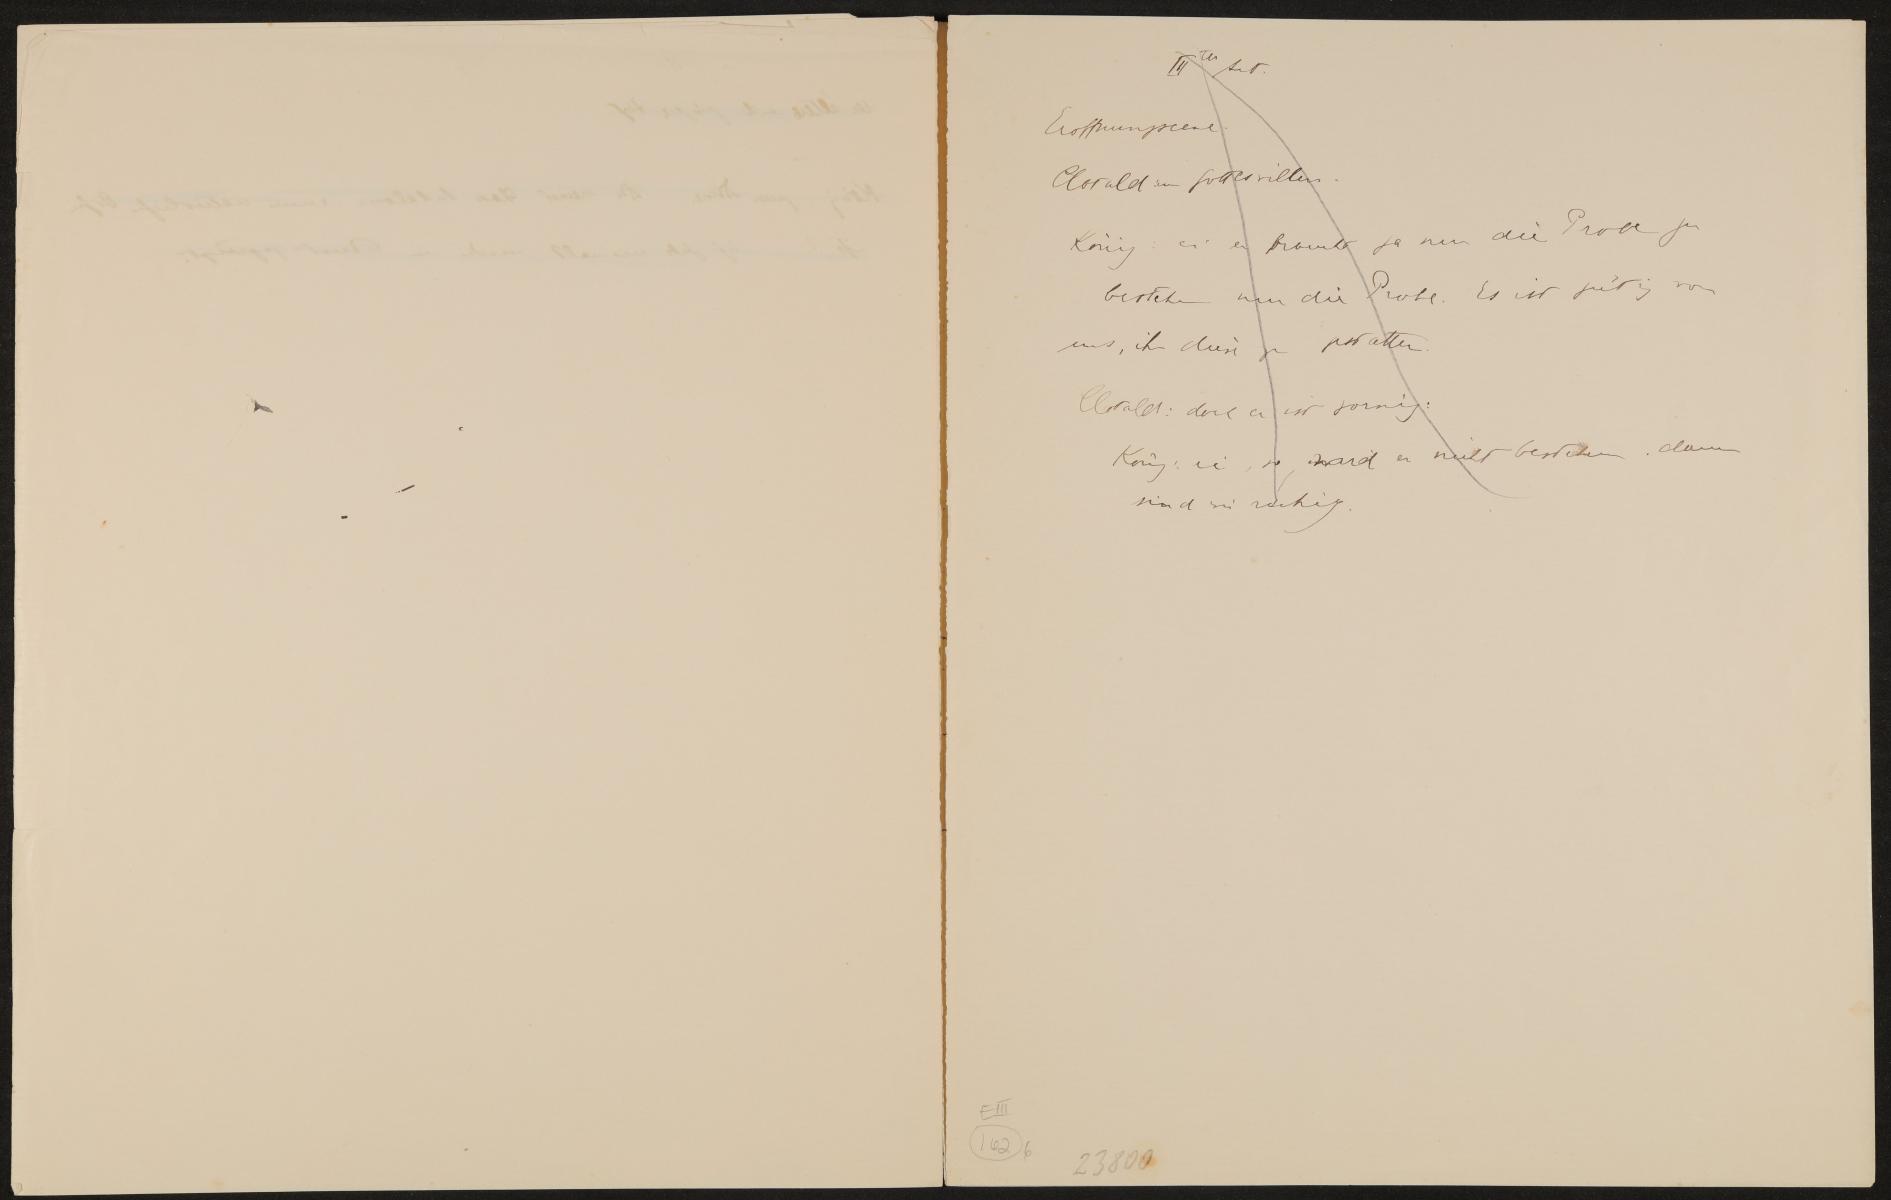 III ter Act.
Eröffnungscene.
Clotald um gotteswillen.
König: ei er braucht ja nun die Probe zu
bestehen nun die Probe. Es ist gütig von
uns, ihm diese zu gestatten.
Clotald: doch er ist zornig:
König: ei, so, wird er nicht bestehen. dann
sind wir ruhig.
E III
162 b
23800